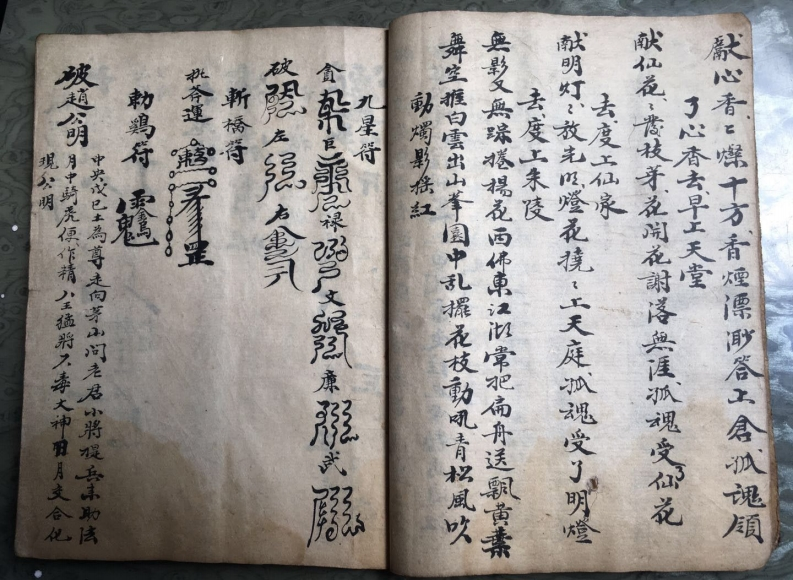 献心香〻燦十方香煙漂渺答上倉孤魂領
了心香去早上天堂
献仙花〻發枝芽花開花謝落無涯孤魂受了仙花
去度上仙家
献明灯〻放光明燈花撓〻上天庭孤魂受了明燈
去度上朱陵
無影又無踪捲楊花西佛東江湖常把扁舟送飄黃葉
舞空推白雲出山峯園中乱擺花枝動吼青松風吹
動燭影搖紅
九星符
貪 巨 禄 文 廉 武
破 左 右
斬橋符
桃斧運 罡
勅鷄符
破趙公明
中央戊己土為尊走向茅山问老君小將提兵未助法
月中騎虎便作精八王猛將大毒大神日月交合化
現公明